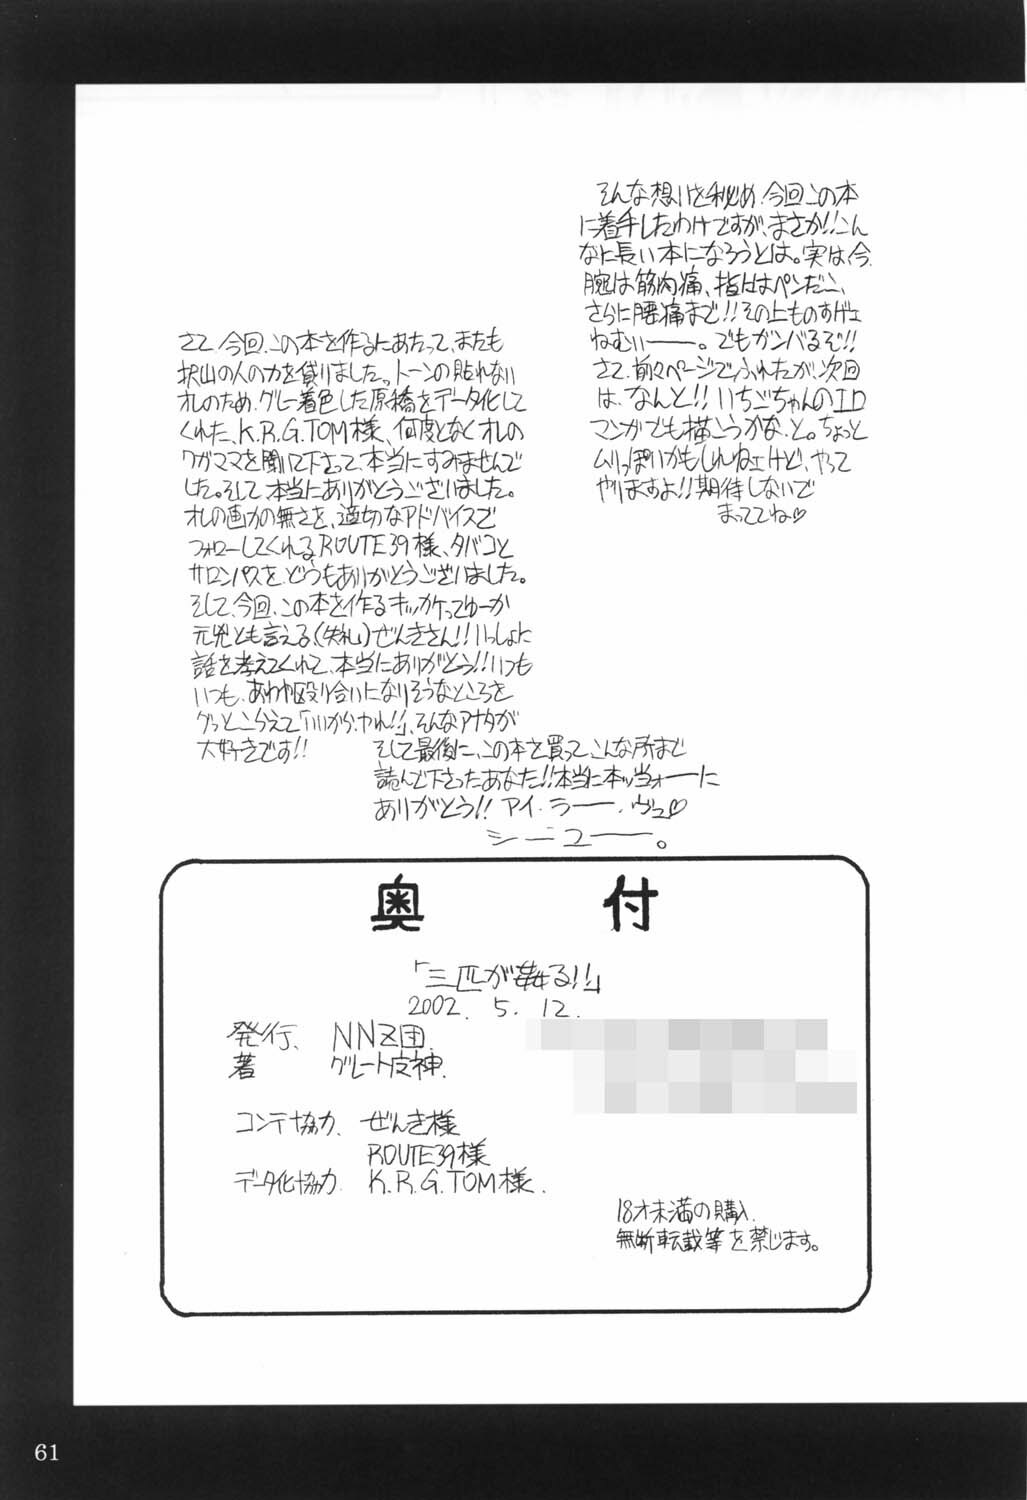 そんな想いを秘め、今回この本
に着手したわけですが、まさか!!こん
なに長い本になろうとは。実は今、
腕は筋肉痛、指はペンだこ、
さらに腰痛まで!!その上ものすげェ
ねむいーー。でもガンバるぞ!!
さて、前々ページでふれたが、次回
は、なんと!!いちごちゃんのエロ
マンガでも描こうかな、と。ちょっと
ムリっぽいかもしれねェけど、やって
やりますよ!!期待しないで
まっててね♡
さて、今回、この本を作るにあたって、またも
沢山の人の力を貸りました。トーンの貼れない
オレのため、グレー着色した原稿をデータ化して
くれた、K.R.G.TOM様、何度となくオレの
ワガママを聞いて下さって、本当にすみませんで
した。そして、本当にありがとうございました。
オレの画力の無さを、適切なアドバイスで
フォローしてくれる、ROUTE39様、タバコと
サロンパスを、どうもありがとうございました。
そして、今回、この本を作るキッカケってゆーか
元兇とも言える、(失礼)ぜんきさん!!いっしょに
話を考えてくれて、本当にありがとう!!いつも
いつも、あわや殴り合いになりそうなところを
グっとこらえて「いいから、やれ!!」、そんなアナタが
大好きです!!
そして最後に、この本を買って、こんな所まで
読んで下さったあなた!!本当に本ッ当ォーに
ありがとう!!アイ・ラー・ヴュ♡
シーユー。
奥付
「三匹が姦る!!」
2002. 5. 12.
発行、NNZ団.
著 グレート皮神.
コンテ協力、ぜんき様
ROUTE39様
データ化協力、K.R.G.TOM様.
18才未満の購入、
無断転載等を禁じます。
61